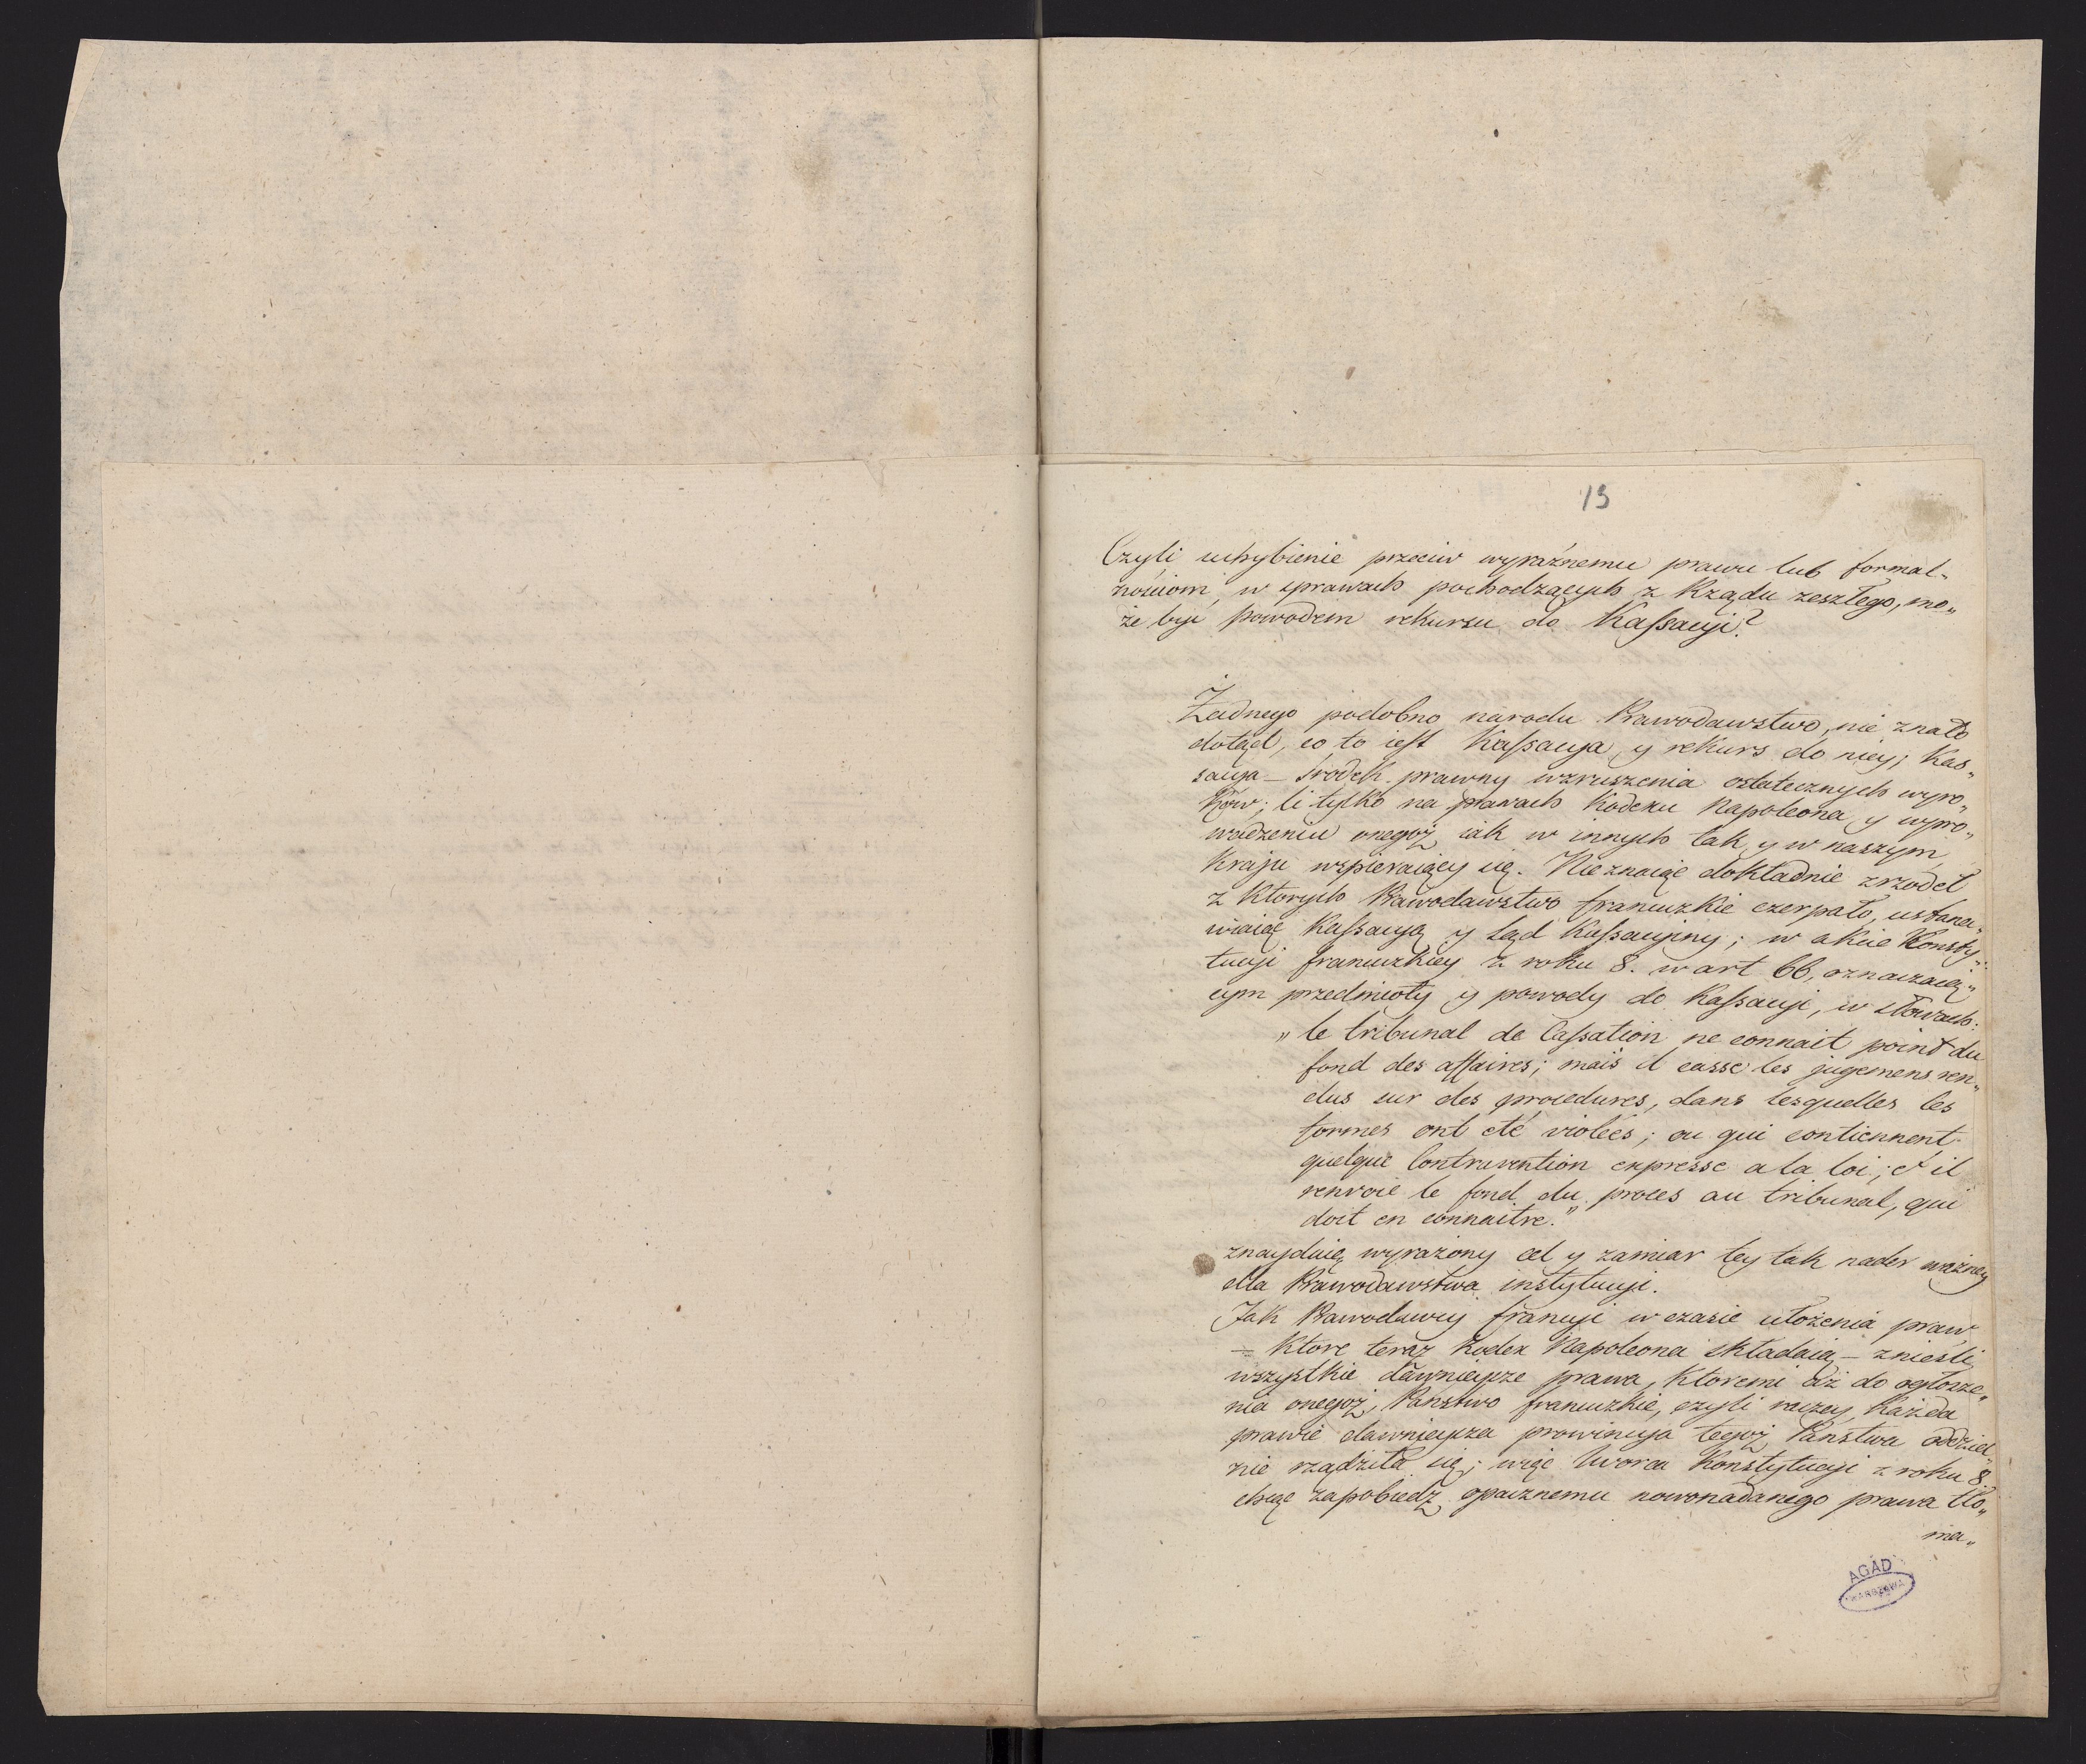 13
Czyli uchybienie przeciw wyraźnemu prawu lub formal„
nościom, w sprawach pochodzących z Rządu zeszłego, mo„
że być powodem rekursu do Kaſsacyi?
Żadnego podobno narodu Prawodawstwo, nie znało
dotąd, co to iest Kaſsacya, y rekurs do niey; Kas„
sacya – środek prawny wzruszenia ostatecznych wyro„
ków; li tylko na prawach Kodexu Napoleona y wypro„
wadzeniu onegoż, iak w innych tak y w naszym
Kraju wspieraiący się. Nie znaiąc dokładnie zrzodeł
z ktorych Prawodawstwo francuzkie czerpało, ustana„
wiaiąc Kaſsacyą y Sąd Kaſsacyiny; w akcie Konsty„
tucyi francuzkiey z roku 8. w art 66, oznaczaią„
cym przedmioty y powody do Kaſsacyi, w słowach:
„le tribunal de Caſsation ne connait point du
fond des affaires; mais il casse les jugemens ren„
dus sur des procedures, dans lesquelles les
formes ont eté violées; ou qui contiennent
quelque Contravention expresse a la loi; et il
renvoie le fond du proces au tribunal, qui
doit en connaitre.”
znayduię wyrażony cel y zamiar tey tak nader ważney
dla Prawodawstwa instytucyi.
Jak Prawodawcy francyi w czasie ułożenia praw
– ktore teraz Kodex Napoleona składaią – znieśli
wszystkie dawnieysze prawa, ktoremi aż do ogłosze„
nia onegoż, Panstwo francuzkie, czyli raczey każda
prawie dawnieysza prowincya tegoż Państwa oddziel„
nie rządziła się; więc tworca Konstytucyi z roku 8.
chcąc zapobiedz opacznemu nowonadanego prawa tło„
ma„
AGAD
WARSZAWA